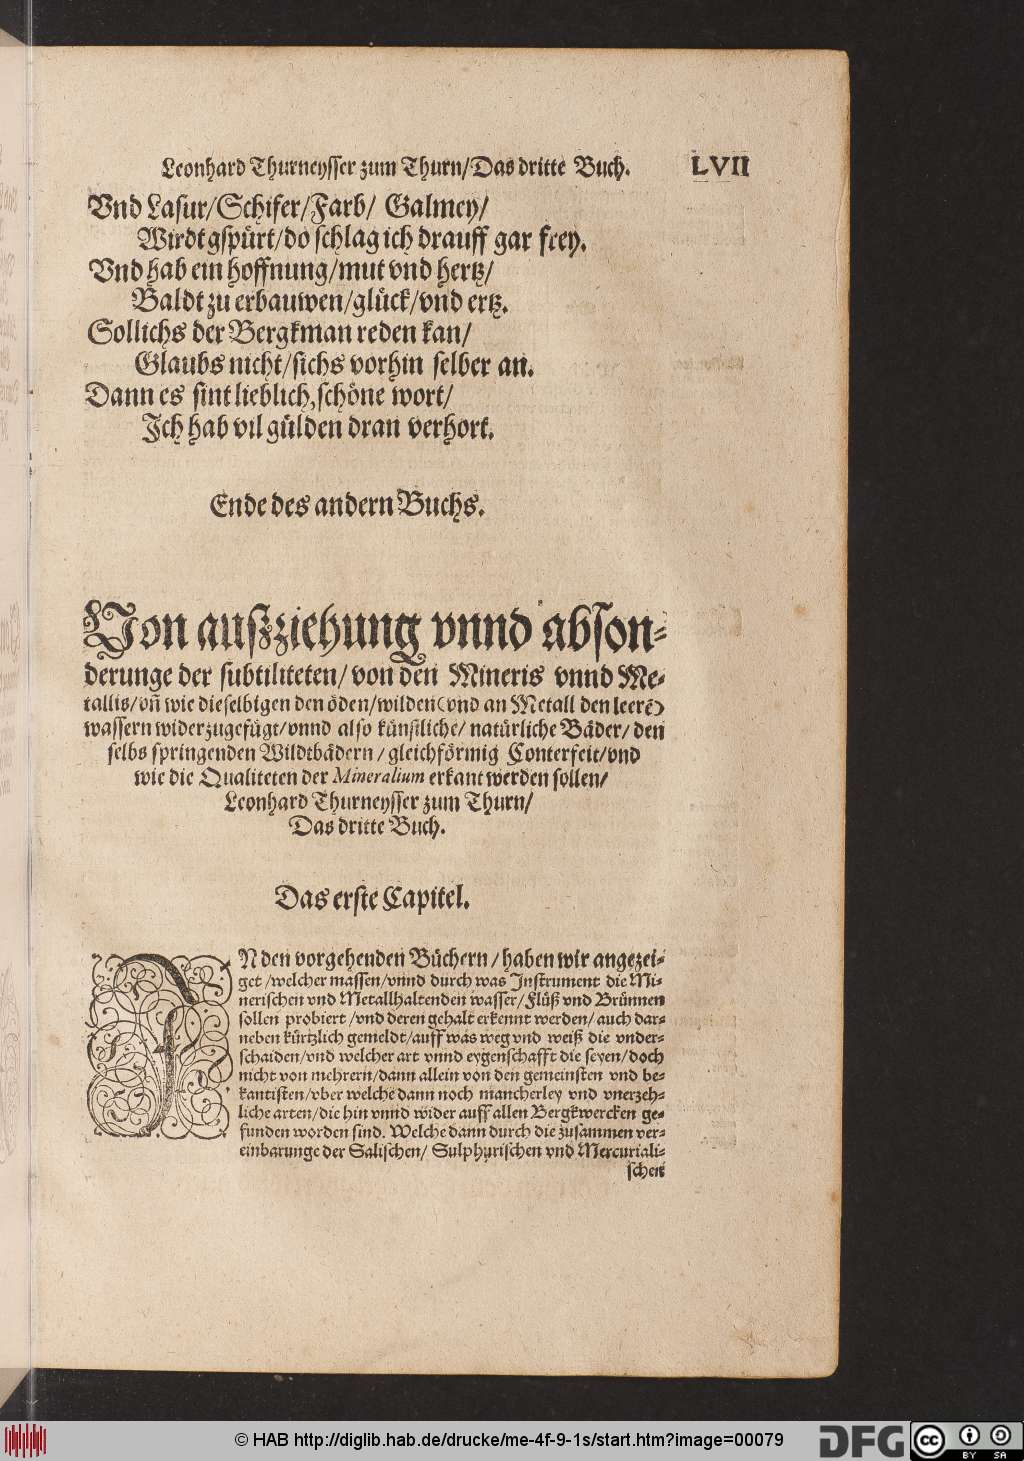 Leonhard Thurneysser zum Thurn/Das dritte Buch. LVII
Vnd Lasur/Schifer/Farb/ Galmey/
Wirdt gspürt/do schlag ich drauff gar frey.
Vnd hab ein hoffnung/mut vnd hertz/
Baldt zu erbauwen/glück/vnd ertz.
Sollichs der Bergkman reden kan/
Glaubs nicht/sichs vorhin selber an.
Dann es sint lieblich,schöne wort/
Ich hab vil gülden dran verhort.
Ende des andern Buchs.
Von außziehung vnnd abson-
derunge der subtiliteten/von den Mineris vnnd Me-
tallis/vñ wie dieselbigen den öden/wilden(vnd an Metall den leerē)
wassern widerzugefügt/vnnd also künstliche/ natürliche Bäder/den
selbs springenden Wildtbädern/gleichförmig Conterfeit/vnd
wie die Qualiteten der Mineralium erkant werden sollen/
Leonhard Thurneysser zum Thurn/
Das dritte Buch.
Das erste Capitel.
IN den vorgehenden Büchern/haben wir angezei-
get/welcher massen/vnnd durch was Instrument die Mi-
nerischen vnd Metallhaltenden wasser/Flüß vnd Brünnen
sollen probiert/vnd deren gehalt erkennt werden/auch dar-
neben kürtzlich gemeldt/auff was weg vnd weiß die vnder-
schaiden/vnd welcher art vnnd eygenschafft die seyen/doch
nicht von mehrern/dann allein von den gemeinsten vnd be-
kantisten/vber welche dann noch mancherley vnd vnerzeh-
liche arten/die hin vnnd wider auff allen Bergkwercken ge-
funden worden sind. Welche dann durch die zusammen ver-
einbarunge der Salischen/ Sulphurischen vnd Mercuriali-
schen
© HAB http://diglib.hab.de/drucke/me-4f-9-1s/start.htm?image=00079
DFG
cc BY SA